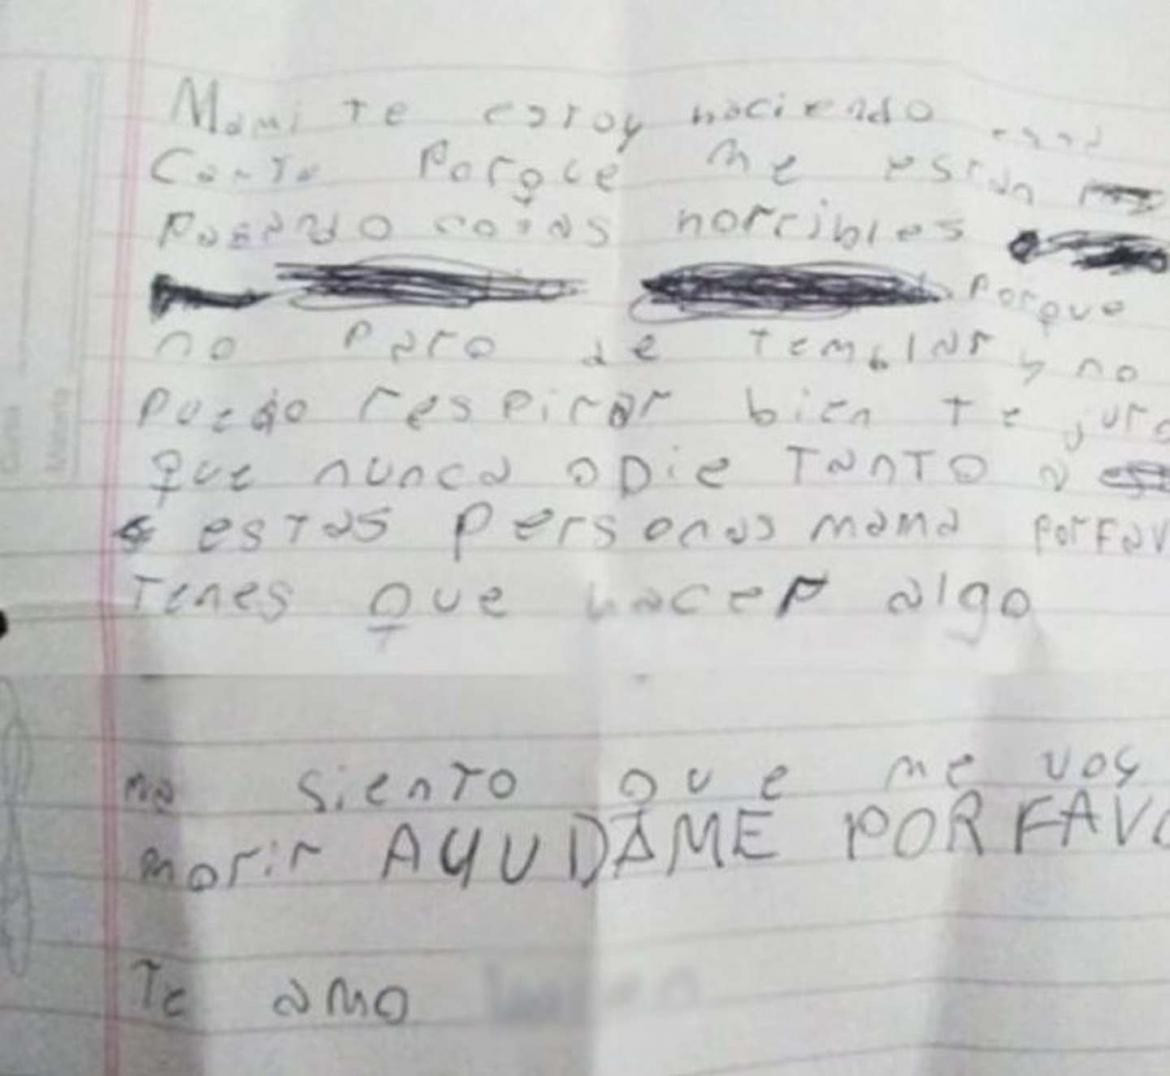 Mami te estoy haciendo esta
Carta Porque me están
Pasando cosas horribles
Porque
no Paro de temblar y no
Puedo respirar bien Te juro
que nunca odie TanTO a
estas Personas mama PorFav
Tenes Que hacer algo
ma siento que me voy
morir AYUDAME POR FAVO
Te amo